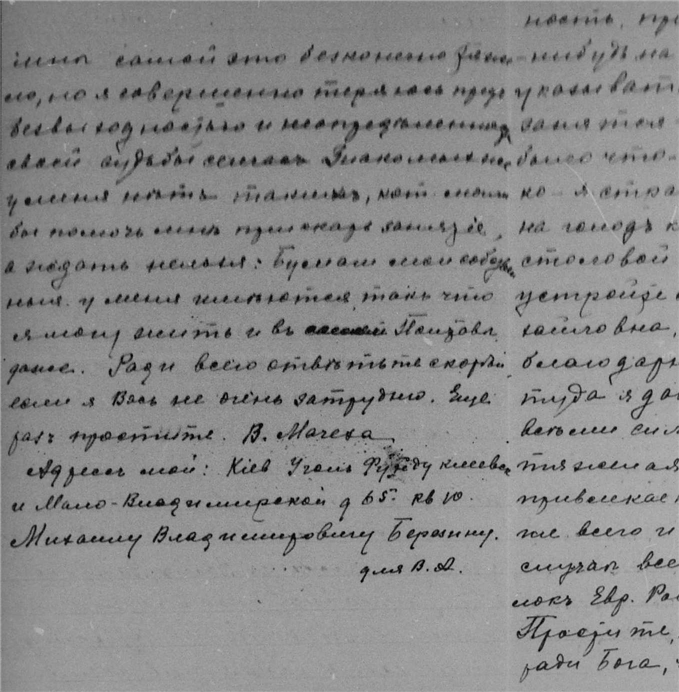 самой это безконечно
но я совершенно теряюсь пред
безвыходностью и неопределенностью
своей судьбы сейчас Знакомых
у меня нѣтъ такихъ, кот могли
бы помочь мнѣ приискать занятіе,
а ждать нельзя: Бумаги мои
у меня имѣются, такъ что
я могу жить и въ
даже. Ради всего отвѣтьте скорѣй
если я Васъ не очень затрудню. Еще
разъ простите. В. Мачеха
Адресъ мой: Кіев Уголъ Фундуклеевс
и Мало-Владимирской д 65 кв 10.
Михаилу Владимировичу Березину.
для В. А.
ность, при
нибудь на
указыват
занятся
было что-
ко - я стра
на голодъ к
столовой
устройте
благодарн
туда я да
всѣми сил
тяжелая
привлекае
же всего и
случая все
локъ Евр. Ра
Простите,
ради Бога,